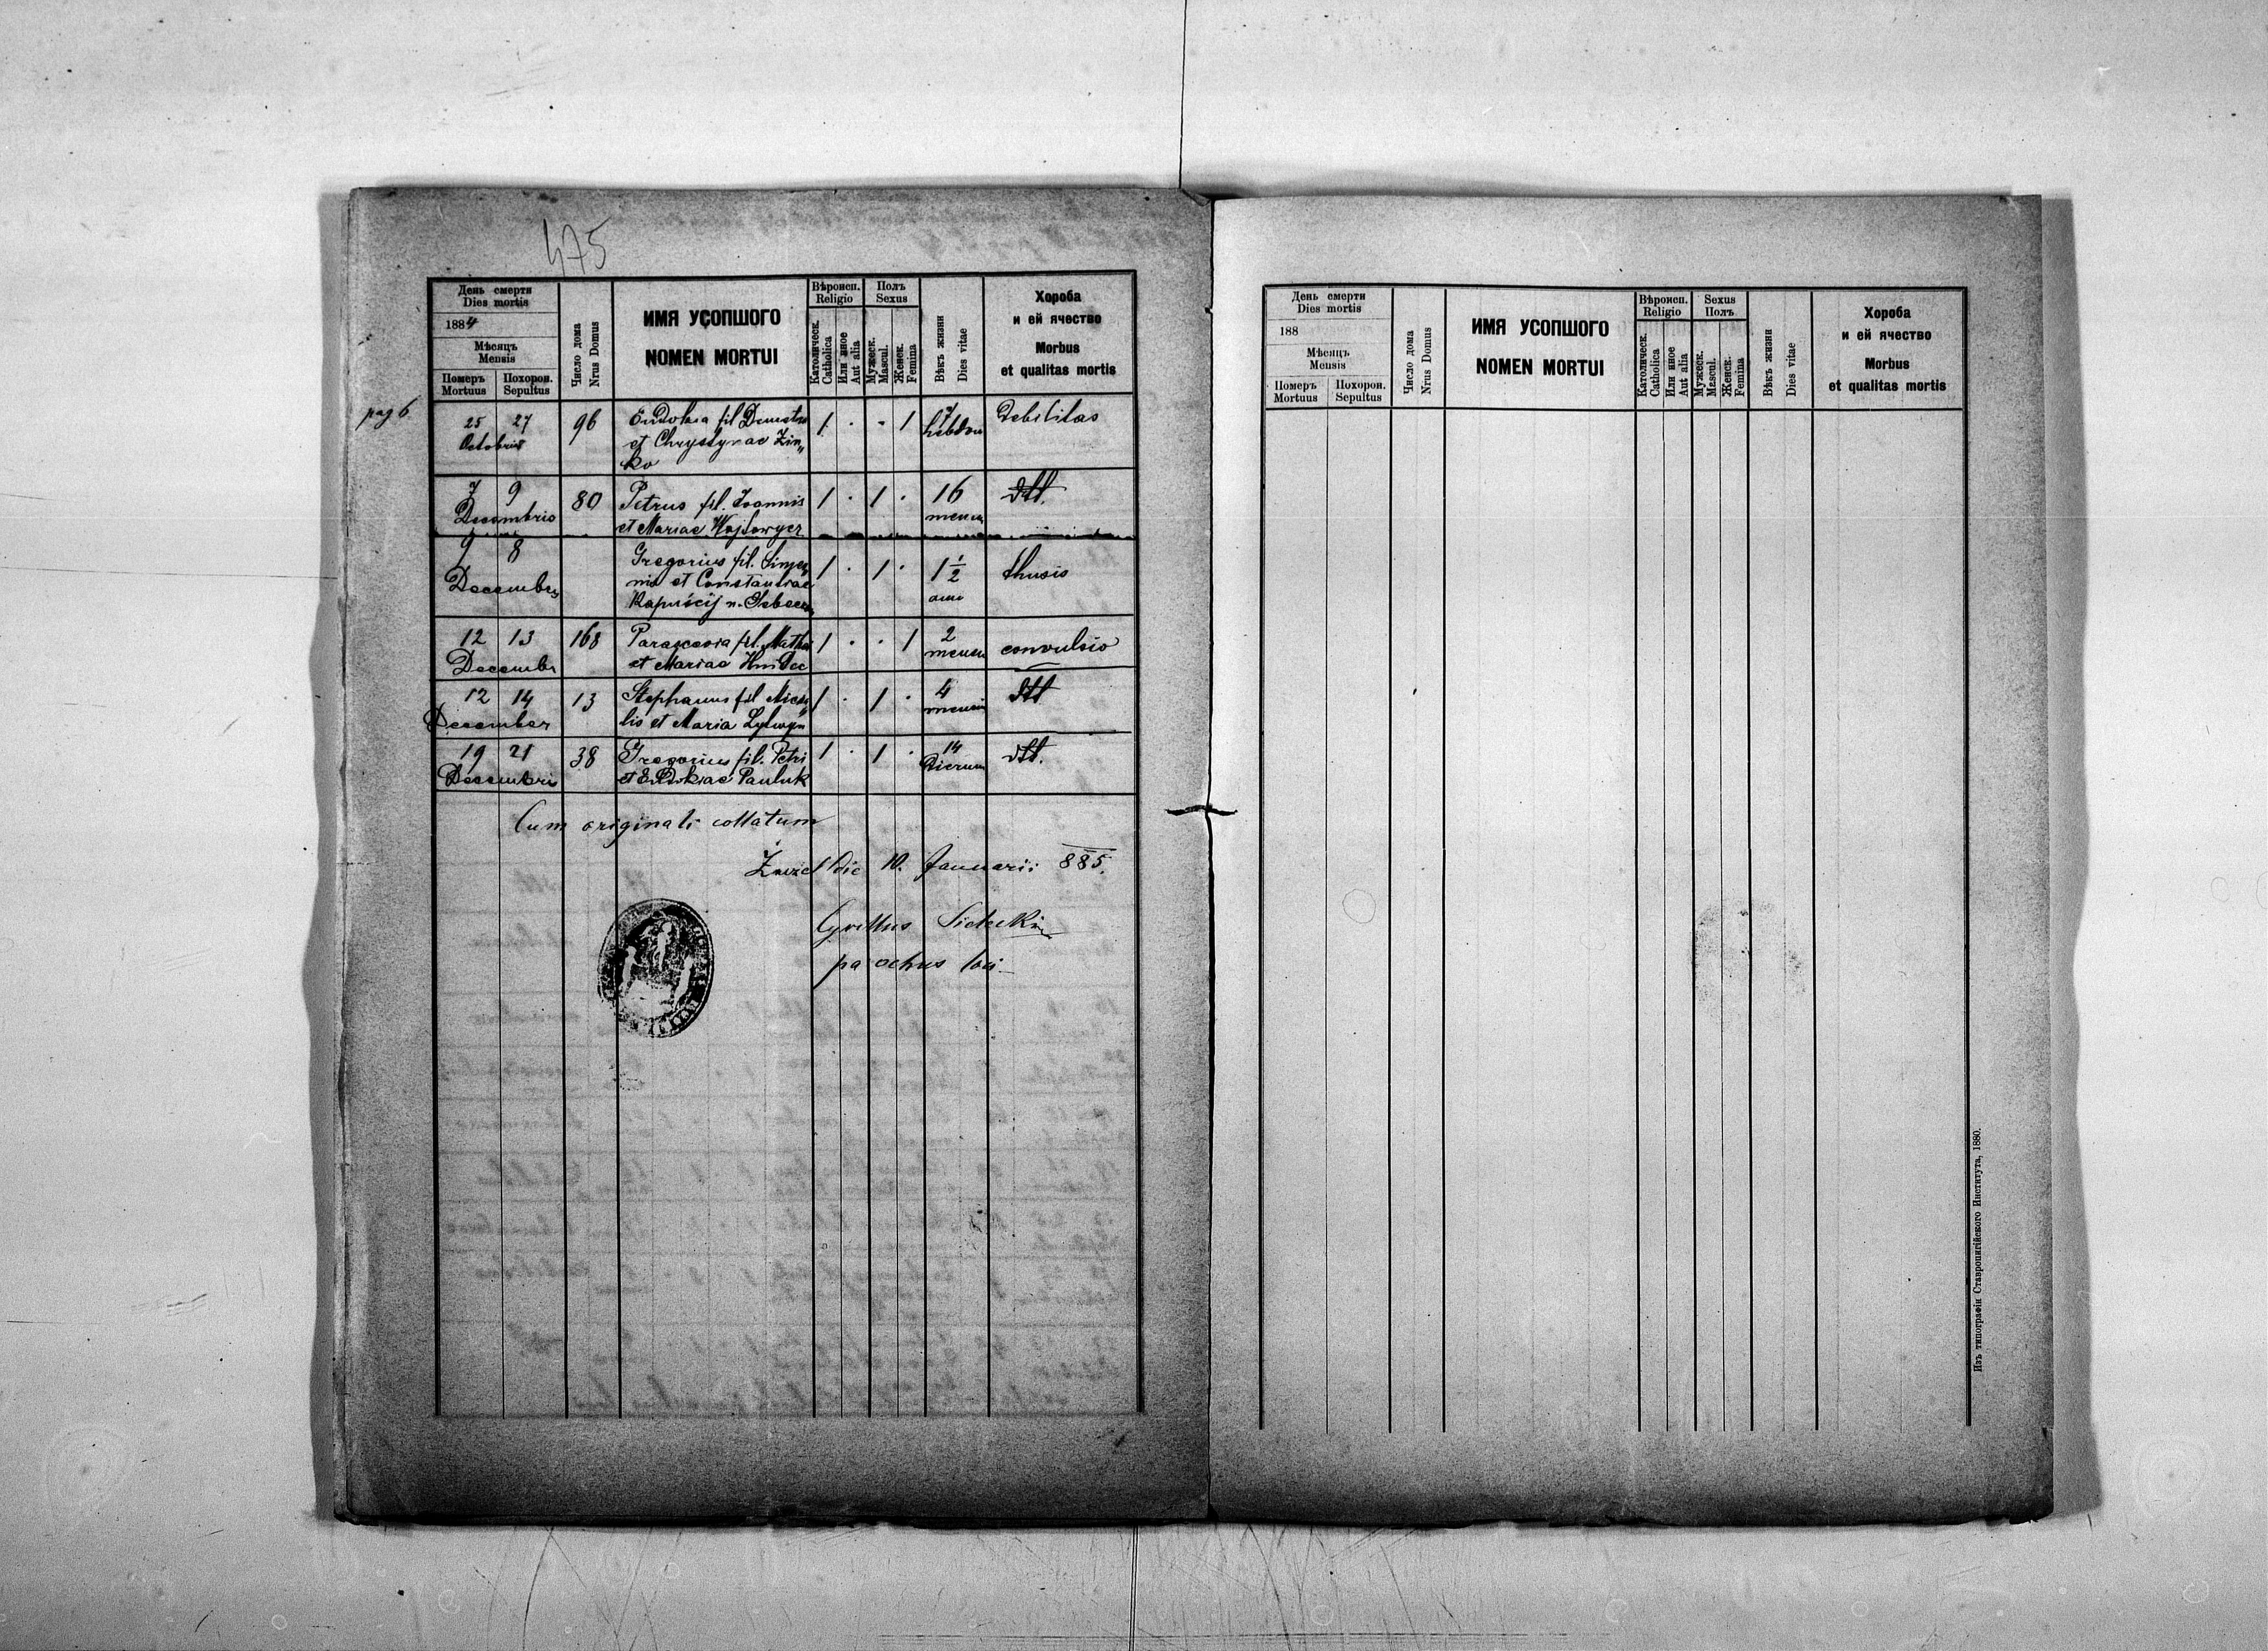 475
pag 6.
День смерти
Dies mortis
1884
Мѣсяцъ
Mensis
Померъ Похорон.
Mortuus Sepultus
Число дома
Nrus Domus
ИМЯ УСОПШОГО
NOMEN MORTUI
Вѣроисп.
Religio
Католическ.
Catholica
Или иное
Aut alia
Полъ
Sexus
Мужеск.
Mascul.
Женск.
Femina
Вѣкъ жизни
Dies vitae
Хороба
и ей ячество
Morbus
et qualitas mortis
25 27 96 Eudokia fil Demetrii 1 · · 1 7 Debilitas
Octobris et Chrystynae Zin„ hebdom
ko
7 9 80 Petrus fil. Joannis 1 · 1 · 16 dtt.
Decembris et Mariae Wojtowycz mensi
9 8 Gregorius fil. 1 · 1 · 1 1/2 thusis
Decembris et Constantiae
12 13 168 Parascevia fil. Mathei 1 · · 1 2 convulsio
Decembr et Mariae Hnidec mensi
12 14 13 Stephanus fil Micha 1 · 1 · 4 dtt
December lis et Maria Lytwyn mensi
19 21 38 Gregorius fil. Petri 1 · 1 · 14 dtt.
Decembris et Eudokiae Pauluk dierum
Cum originali collatum
die 10. Januarii 885.
Cyrillus Sielecki
parochus loci
День смерти
Dies mortis
188
Мѣсяцъ
Mensis
Померъ Похорон.
Mortuus Sepultus
Число дома
Nrus Domus
ИМЯ УСОПШОГО
NOMEN MORTUI
Вѣроисп.
Religio
Католическ.
Catholica
Или иное
Aut alia
Sexus
Полъ
Мужеск.
Mascul.
Женск.
Femina
Вѣкъ жизни
Dies vitae
Хороба
и ей ячество
Morbus
et qualitas mortis
Изъ типографіи Ставропигійского Института, 1880.